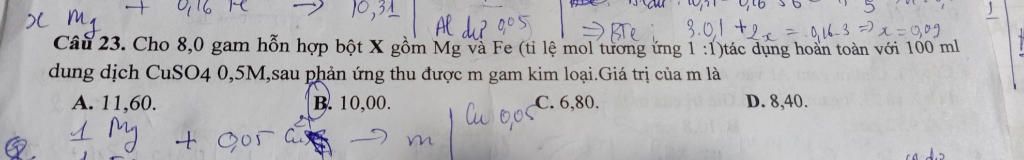 x Mg + 0,16 Fe → 10,31
Al dư 0,05
⇒ BTe: 3.0,1 + 2x = 0,16.3 ⇒ x = 0,09
Câu 23. Cho 8,0 gam hỗn hợp bột X gồm Mg và Fe (tỉ lệ mol tương ứng 1 :1)tác dụng hoàn toàn với 100 ml
dung dịch CuSO4 0,5M,sau phản ứng thu được m gam kim loại.Giá trị của m là
A. 11,60. B. 10,00. C. 6,80. D. 8,40.
1 Mg + 0,05 Cu → m
Cu 0,05